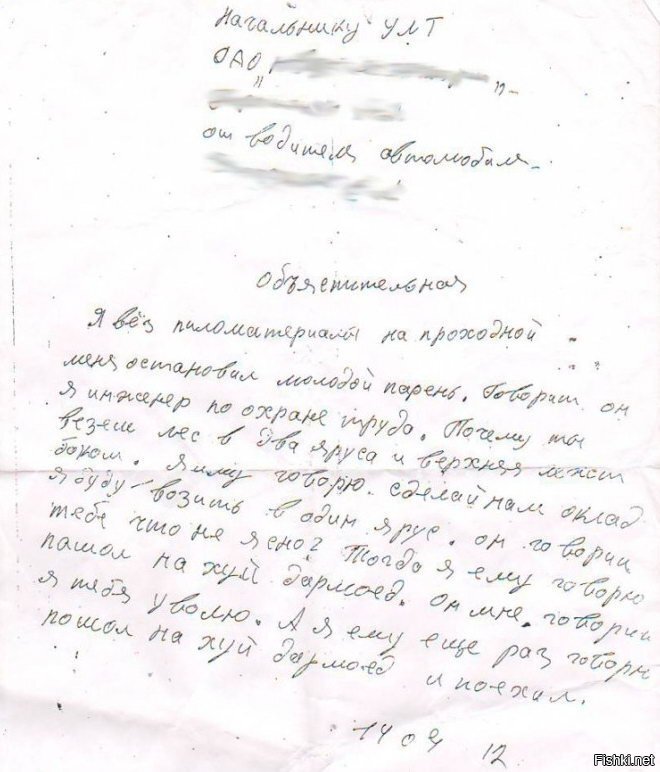 Начальнику УМТ
ОАО "
"-
от водителя автомобиля-
Объястительная
Я вёз пиломатериалы на проходной
меня остановил молодой парень. Говорит он
я инженер по охране труда. Почему ты
везеш лес в два яруса и верхняя лежит
боком. Я иму говорю. сделай нам оклад
я буду возить в один ярус. он говорит
тебе что не ясно? Тогда я ему говорю
пашол на хуй дармоед. он мне. говорит
я тебя уволю. А я ему еще раз говорю
пошол на хуй дармоед и поехал.
14 04 12
Fishki.net